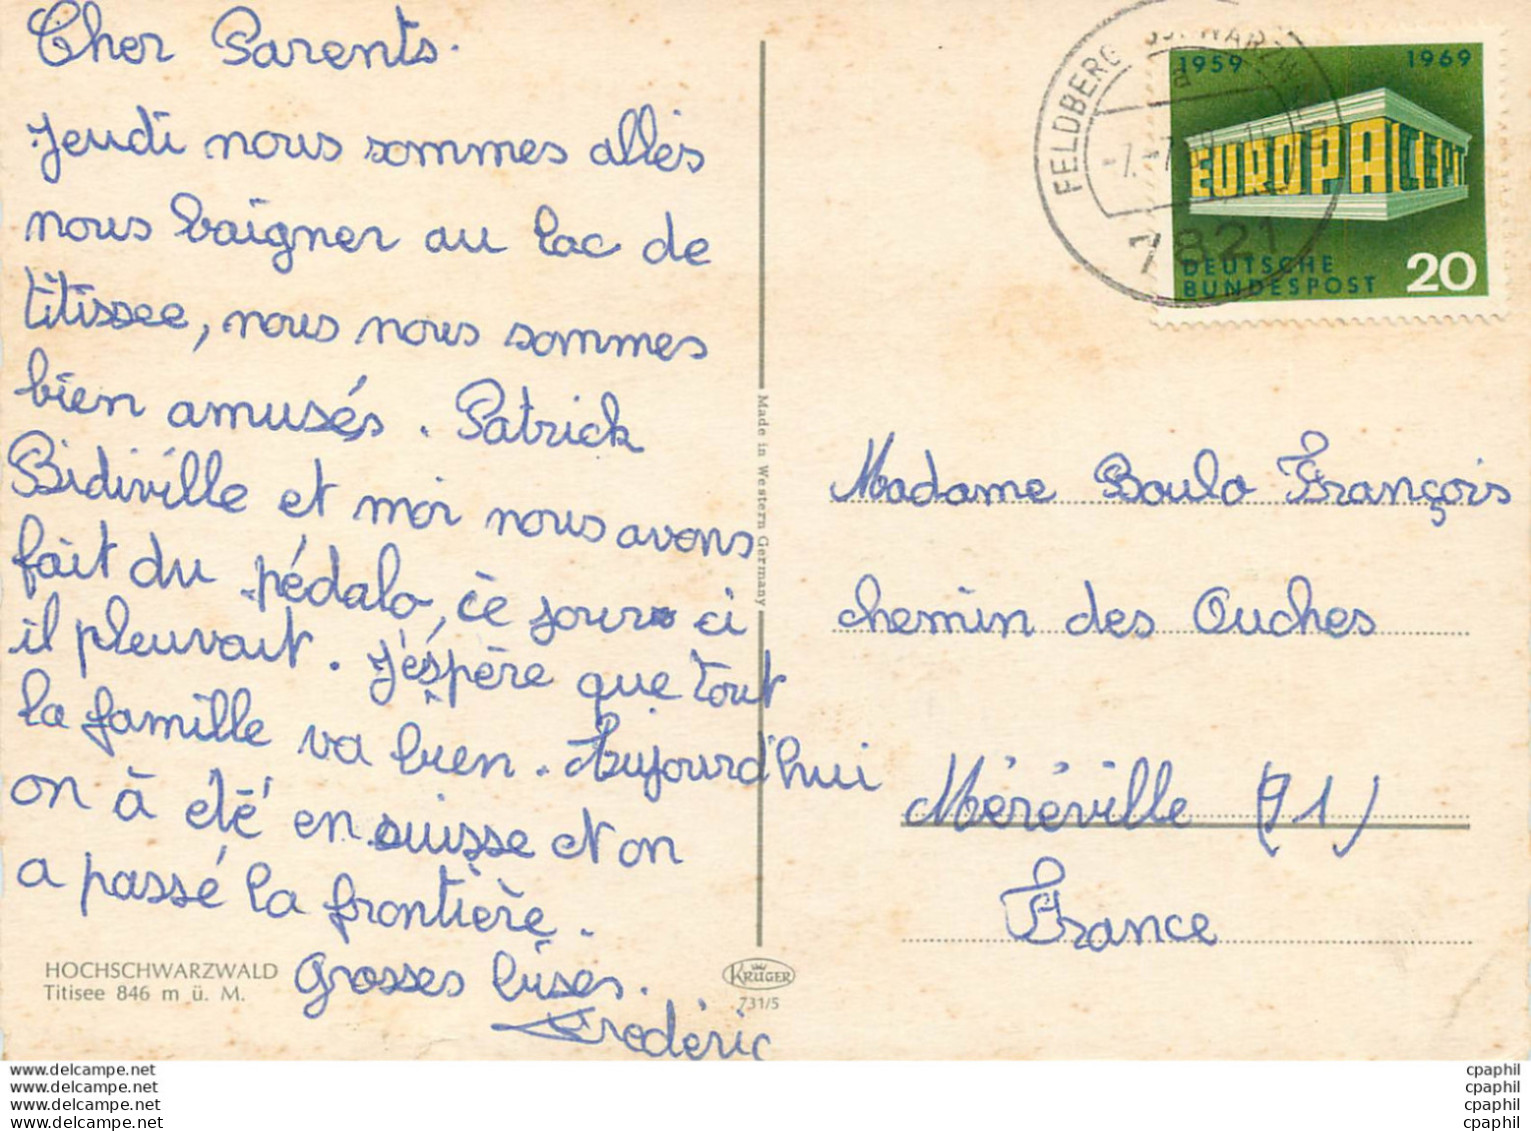 Cher Parents.
Jeudi nous sommes allés
nous baigner au lac de
titissee, nous nous sommes
bien amusés. Patrick
Bidiville et moi nous avons
fait du pédalo, ce jour ci
il pleuvait. J'éspère que tout
la famille va bien. Aujourd'hui
on à été en suisse et on
a passé la frontière.
Grosses bises.
Frédéric
HOCHSCHWARZWALD
Titisee 846 m ü. M.
Made in Western Germany
KRÜGER
731/5
FELDBERG SCHWARZW
a
-7.-7
7821
1959 1969
EUROPA CEPT
DEUTSCHE
BUNDESPOST 20
Madame Boula François
chemin des Ouches
Méréville (91)
France
www.delcampe.net
www.delcampe.net
www.delcampe.net
www.delcampe.net
cpaphil
cpaphil
cpaphil
cpaphil